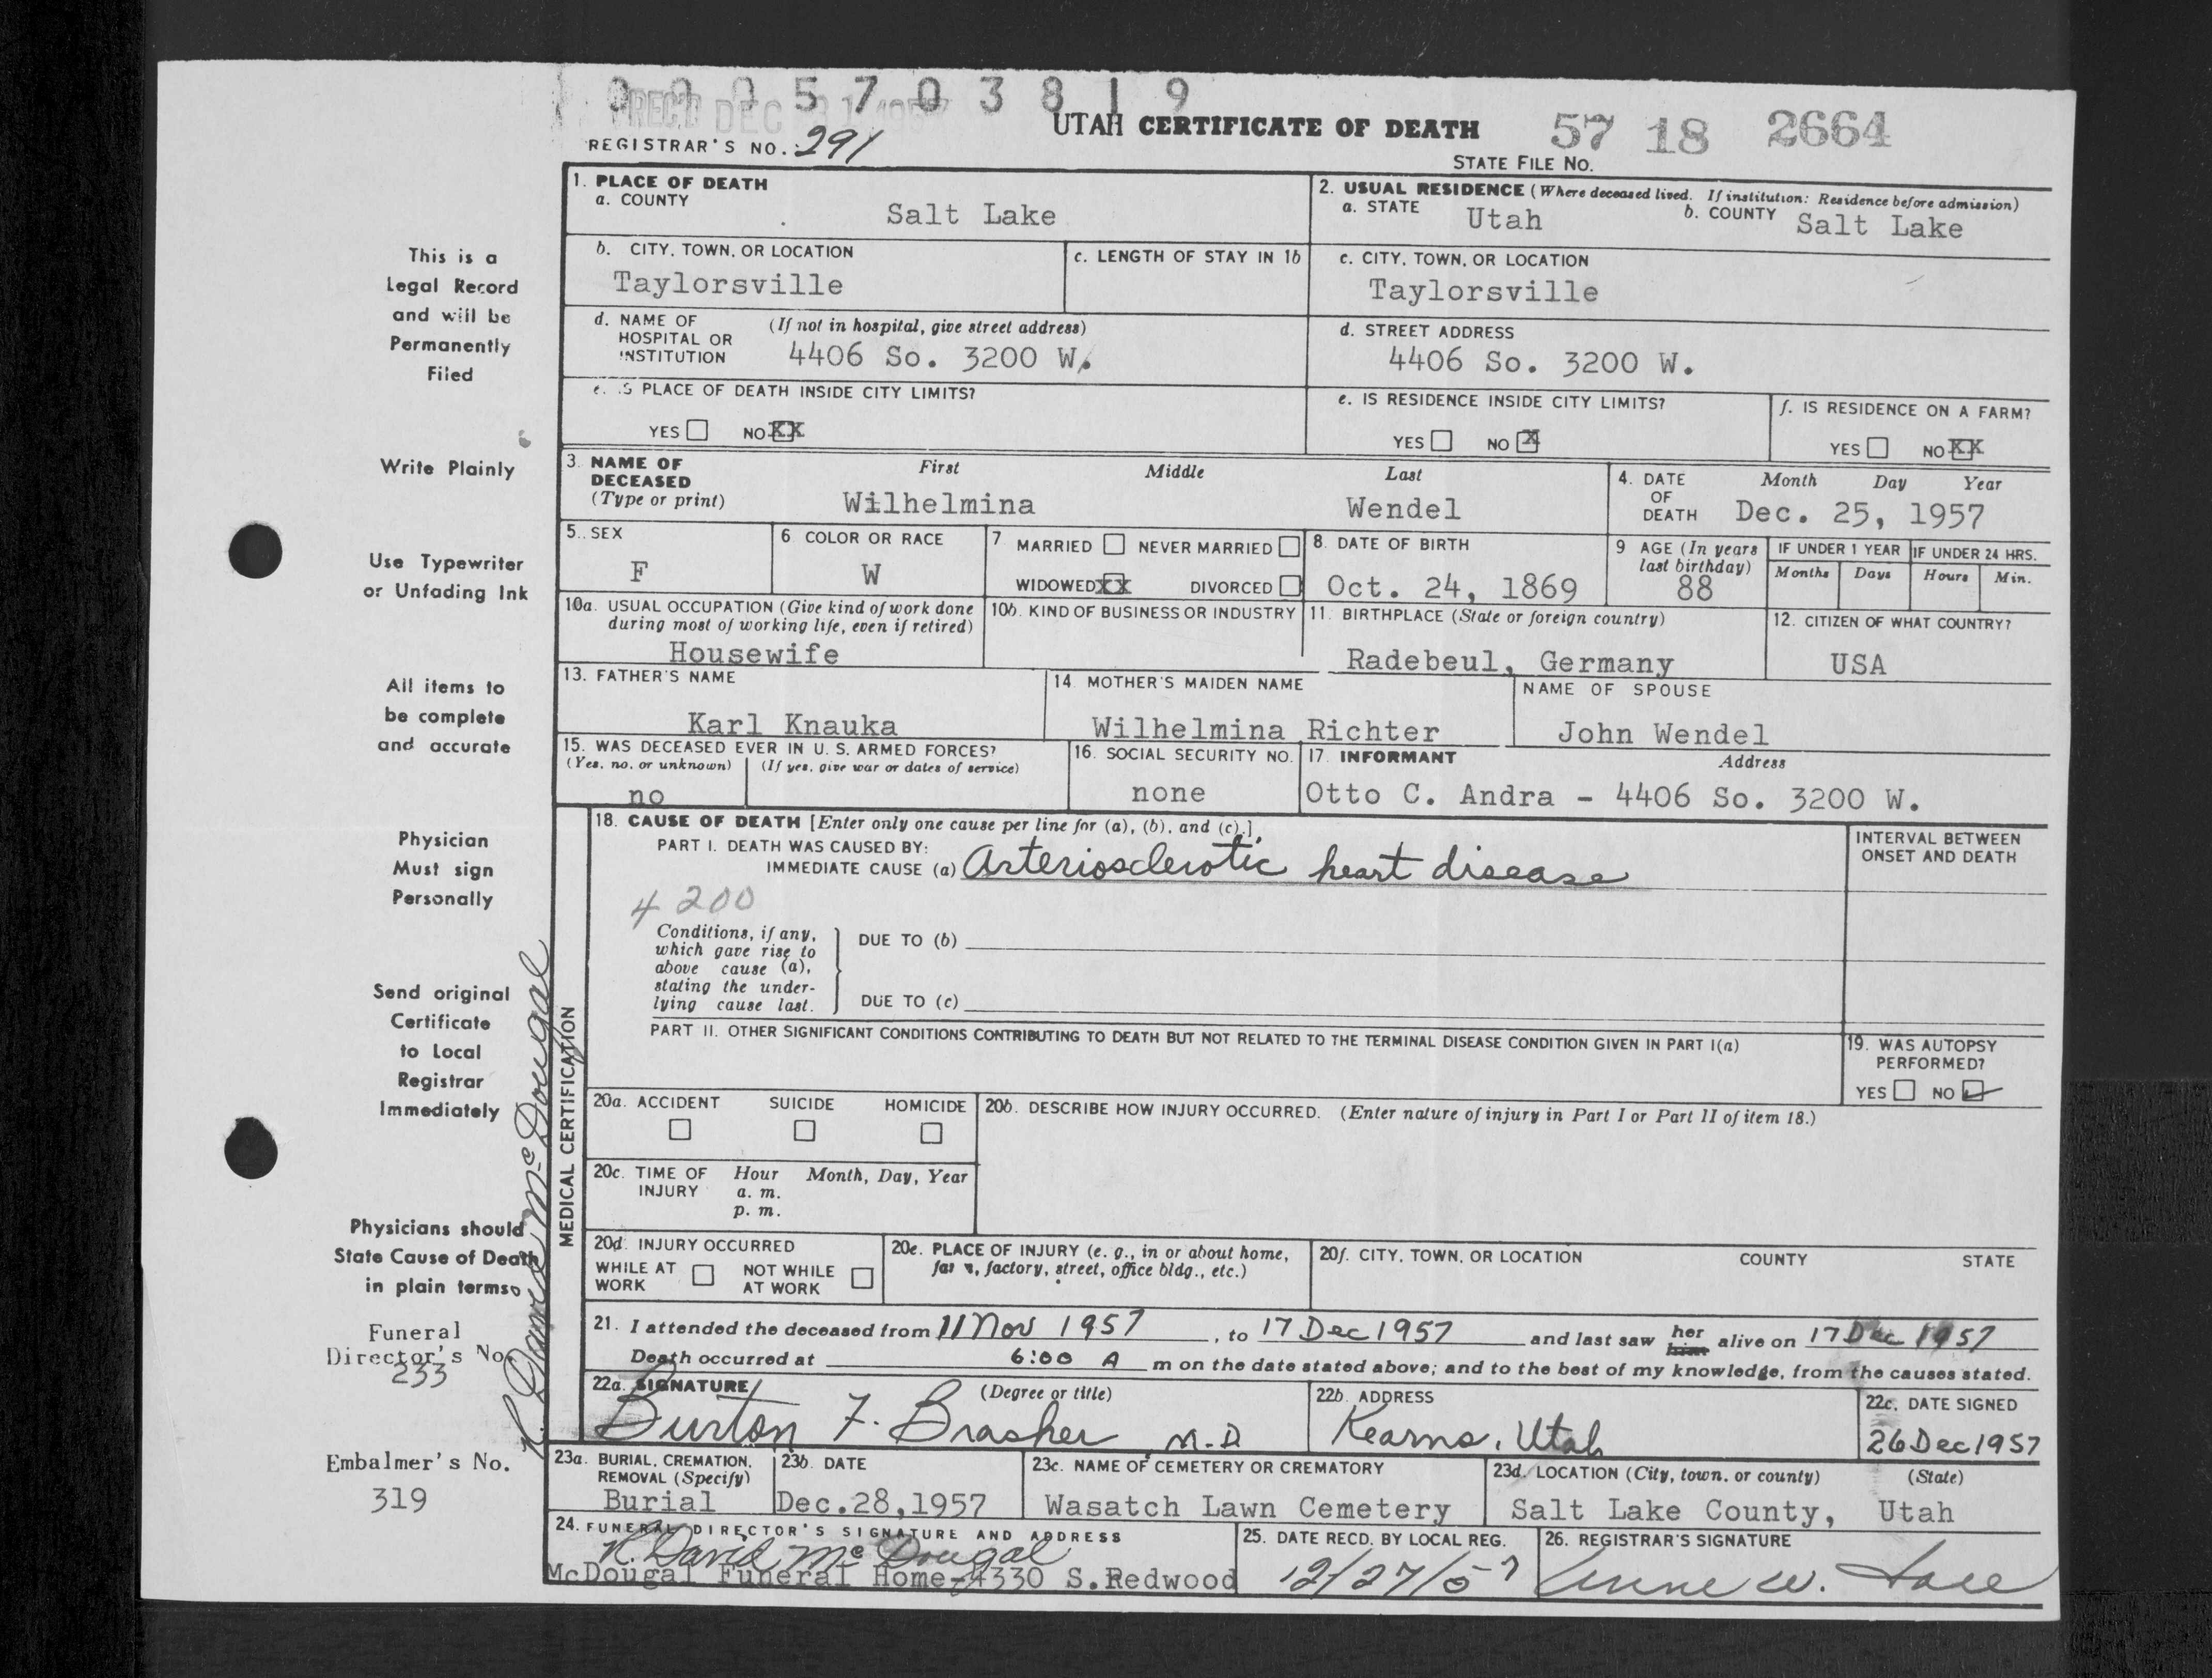 0 0 0 5 7 0 3 8 1 9
REC'D DEC 31 1957
UTAH CERTIFICATE OF DEATH 57 18 2664
REGISTRAR'S NO. 291
STATE FILE NO.
1. PLACE OF DEATH
a. COUNTY
Salt Lake
2. USUAL RESIDENCE (Where deceased lived. If institution: Residence before admission)
a. STATE Utah b. COUNTY Salt Lake
b. CITY, TOWN, OR LOCATION
Taylorsville
c. LENGTH OF STAY IN 1b
c. CITY, TOWN, OR LOCATION
Taylorsville
d. NAME OF HOSPITAL OR INSTITUTION (If not in hospital, give street address)
4406 So. 3200 W.
d. STREET ADDRESS
4406 So. 3200 W.
e. IS PLACE OF DEATH INSIDE CITY LIMITS?
YES NO XX
e. IS RESIDENCE INSIDE CITY LIMITS?
YES NO X
f. IS RESIDENCE ON A FARM?
YES NO XX
3. NAME OF DECEASED (Type or print)
First Middle Last
Wilhelmina Wendel
4. DATE OF DEATH Month Day Year
Dec. 25, 1957
5. SEX
F
6. COLOR OR RACE
W
7. MARRIED NEVER MARRIED
WIDOWED XX DIVORCED
8. DATE OF BIRTH
Oct. 24, 1869
9 AGE (In years last birthday)
88
IF UNDER 1 YEAR
Months Days
IF UNDER 24 HRS.
Hours Min.
10a. USUAL OCCUPATION (Give kind of work done during most of working life, even if retired)
Housewife
10b. KIND OF BUSINESS OR INDUSTRY
11. BIRTHPLACE (State or foreign country)
Radebeul, Germany
12. CITIZEN OF WHAT COUNTRY?
USA
13. FATHER'S NAME
Karl Knauka
14. MOTHER'S MAIDEN NAME
Wilhelmina Richter
NAME OF SPOUSE
John Wendel
15. WAS DECEASED EVER IN U. S. ARMED FORCES?
(Yes, no, or unknown) (If yes, give war or dates of service)
no
16. SOCIAL SECURITY NO.
none
17. INFORMANT Address
Otto C. Andra - 4406 So. 3200 W.
MEDICAL CERTIFICATION
18. CAUSE OF DEATH [Enter only one cause per line for (a), (b), and (c).]
PART I. DEATH WAS CAUSED BY:
IMMEDIATE CAUSE (a) Arteriosclerotic heart disease
INTERVAL BETWEEN ONSET AND DEATH
4200
Conditions, if any, which gave rise to above cause (a), stating the underlying cause last.
DUE TO (b)
DUE TO (c)
PART II. OTHER SIGNIFICANT CONDITIONS CONTRIBUTING TO DEATH BUT NOT RELATED TO THE TERMINAL DISEASE CONDITION GIVEN IN PART I(a)
19. WAS AUTOPSY PERFORMED?
YES NO ✓
20a. ACCIDENT SUICIDE HOMICIDE
20b. DESCRIBE HOW INJURY OCCURRED. (Enter nature of injury in Part I or Part II of item 18.)
20c. TIME OF INJURY Hour Month, Day, Year
a. m.
p. m.
20d. INJURY OCCURRED
WHILE AT WORK NOT WHILE AT WORK
20e. PLACE OF INJURY (e. g., in or about home, farm, factory, street, office bldg., etc.)
20f. CITY, TOWN, OR LOCATION COUNTY STATE
21. I attended the deceased from 11 Nov 1957, to 17 Dec 1957 and last saw her him alive on 17 Dec 1957
Death occurred at 6:00 A m on the date stated above; and to the best of my knowledge, from the causes stated.
22a. SIGNATURE (Degree or title)
Burton F. Brasher, M.D
22b. ADDRESS
Kearns, Utah
22c. DATE SIGNED
26 Dec 1957
23a. BURIAL, CREMATION, REMOVAL (Specify)
Burial
23b. DATE
Dec.28,1957
23c. NAME OF CEMETERY OR CREMATORY
Wasatch Lawn Cemetery
23d. LOCATION (City, town, or county) (State)
Salt Lake County, Utah
24. FUNERAL DIRECTOR'S SIGNATURE AND ADDRESS
R. David McDougal
McDougal Funeral Home-4330 S.Redwood
25. DATE RECD. BY LOCAL REG.
12/27/57
26. REGISTRAR'S SIGNATURE
This is a
Legal Record
and will be
Permanently
Filed
Write Plainly
Use Typewriter
or Unfading Ink
All items to
be complete
and accurate
Physician
Must sign
Personally
Send original
Certificate
to Local
Registrar
Immediately
Physicians should
State Cause of Death
in plain terms
Funeral
Director's No.
233
Embalmer's No.
319
R. David McDougal